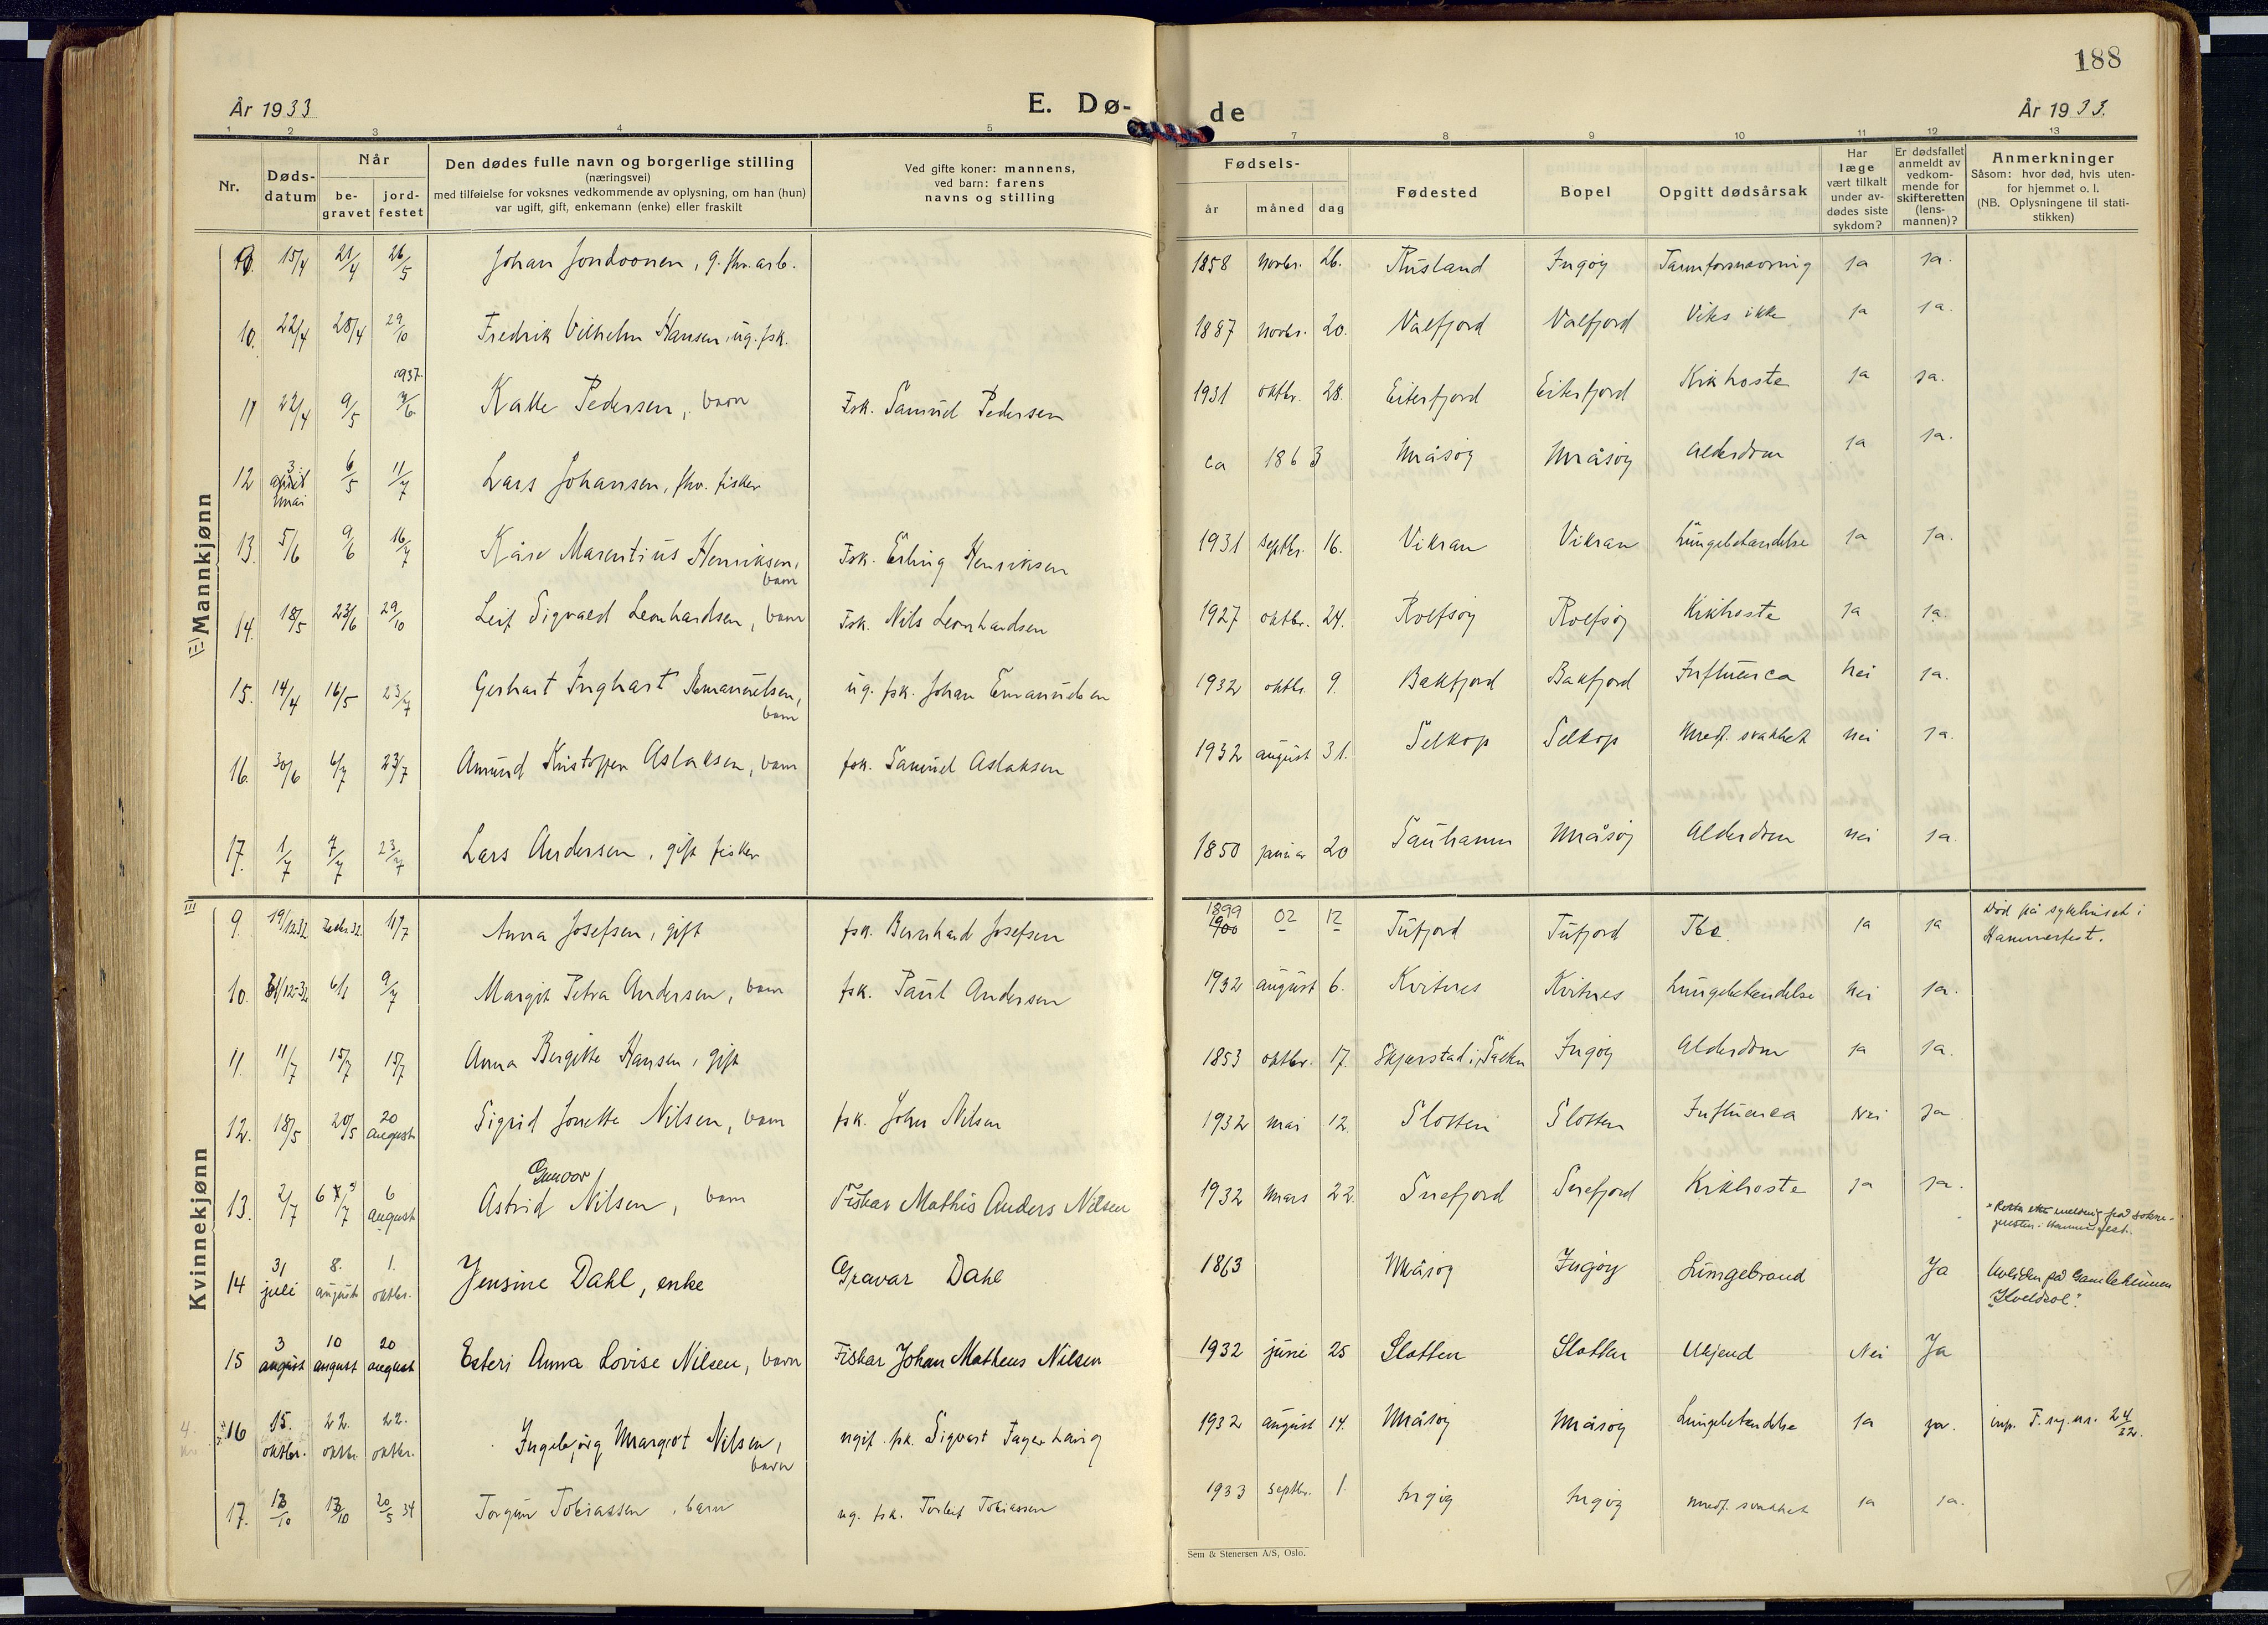 188
År 1933
E. Dø-
de
År 1933.
1 2 3 4 5 7 8 9 10 11 12 13
Nr.
Døds-
datum
Når
be-
gravet
jord-
festet
Den dødes fulle navn og borgerlige stilling
(næringsvei)
med tilføielse for voksnes vedkommende av oplysning, om han (hun)
var ugift, gift, enkemann (enke) eller fraskilt
Ved gifte koner: mannens,
ved barn: farens
navns og stilling
Fødsels-
år måned dag
Fødested
Bopel
Opgitt dødsårsak
Har
læge
vært tilkalt
under av-
dødes siste
sykdom?
Er dødsfallet
anmeldt av
vedkom-
mende for
skifteretten
(lens-
mannen)?
Anmerkninger
Såsom: hvor død, hvis uten-
for hjemmet o. l.
(NB. Oplysningene til stati-
stikken)
Mannkjønn
15/4 21/4 26/5 Johan Jondoonen, g. fhv. arb. 1858 novbr. 26. Rusland Ingøy Tarmforsnevring ja ja.
10. 22/4 28/4 29/10 Fredrik Vilhelm Hansen, ug. fsk. 1887 novbr. 20. Valfjord Valfjord Viks ikke ja ja.
1937
11 22/4 9/5 3/6 Kalle Pedersen, barn Fsk. Samuel Pedersen 1931 oktbr. 28. Eiterfjord Eiterfjord Kikhoste ja ja.
12 3 april mai 6/5 11/7 Lars Johansen, fhv. fisker ca 1863 Måsøy Måsøy Alderdom ja ja.
13. 5/6 9/6 16/7 Kåre Marentius Henriksen, barn Fsk. Erling Henriksen 1931 septbr. 16. Vikran Vikran Lungebetendelse ja ja.
14. 18/5 23/6 29/10 Leif Sigvald Leonhardsen, barn Fsk. Nils Leonhardsen 1927 oktbr. 24. Rolfsøy Rolfsøy Kikhoste ja ja.
15. 14/4 16/5 23/7 Gerhart Inghart Emanuelsen, barn ug. fsk. Johan Emanuelsen 1932 oktbr. 9. Bakfjord Bakfjord Influenca Nei ja.
16. 30/6 6/7 23/7 Amund Kristoffer Aslaksen, barn fsk. Samuel Aslaksen 1932 august 31. Selkop Selkop Medf. svakhet nei ja.
17. 1/7 7/7 23/7 Lars Andersen, gift fisker 1850 januar 20 Sauhamn Måsøy Alderdom nei ja.
Kvinnekjønn
III
9. 19/12 32 11/7 Anna Josefsen, gift fsk. Bernhard Josefsen 1899 1900 02 12 Tufjord Tufjord Tbc. ja ja Død på sykehuset i
Hammerfest.
10. 31/12-32 6/1 9/7 Margit Petra Andersen, barn fsk. Paul Andersen 1932 august 6. Kvitnes Kvitnes Lungebetendelse Nei ja.
11. 11/7 15/7 15/7 Anna Bergitte Hansen, gift 1853 oktbr. 17. Skjerstad i Salten Ingøy Alderdom ja ja.
12. 18/5 20/5 20 august Sigrid Jonette Nilsen, barn fsk. John Nilsen 1932 mai 12. Slotten Slotten Influenca Nei ja
Gunvor
13. 2/7 6 august Astrid Nilsen, barn Fisker Mathis Anders Nilsen 1932 mars 22. Snefjord Snefjord Kikhoste ja ja.
14 31 juli 8. august 1. oktbr. Jensine Dahl, enke Gravar Dahl 1863 Måsøy Ingøy Lungebrand Ja på Gamleheimen
15 3 august 10 august 20 august Esteri Anna Lovise Nilsen, barn Fisker Johan Matheus Nilsen 1932 juni 25 Slotten Slotten Ukjend Nei Ja
16 15. oktbr. 22. oktbr. 22. oktbr. Ingebjørg Margrot Nilsen, barn ugift fsk. Sigvart Fagerhaug 1932 august 14. Måsøy Måsøy Lungebetendelse ja ja. inp. F. rg. nr. 24/32.
17. 13/10 13/10 20/5 34 Torgun Tobiassen, barn ug. fsk. Torleif Tobiassen 1933 septbr. 1. Ingøy Ingøy medf. svakhet ja ja.
Sem & Stenersen A/S, Oslo.